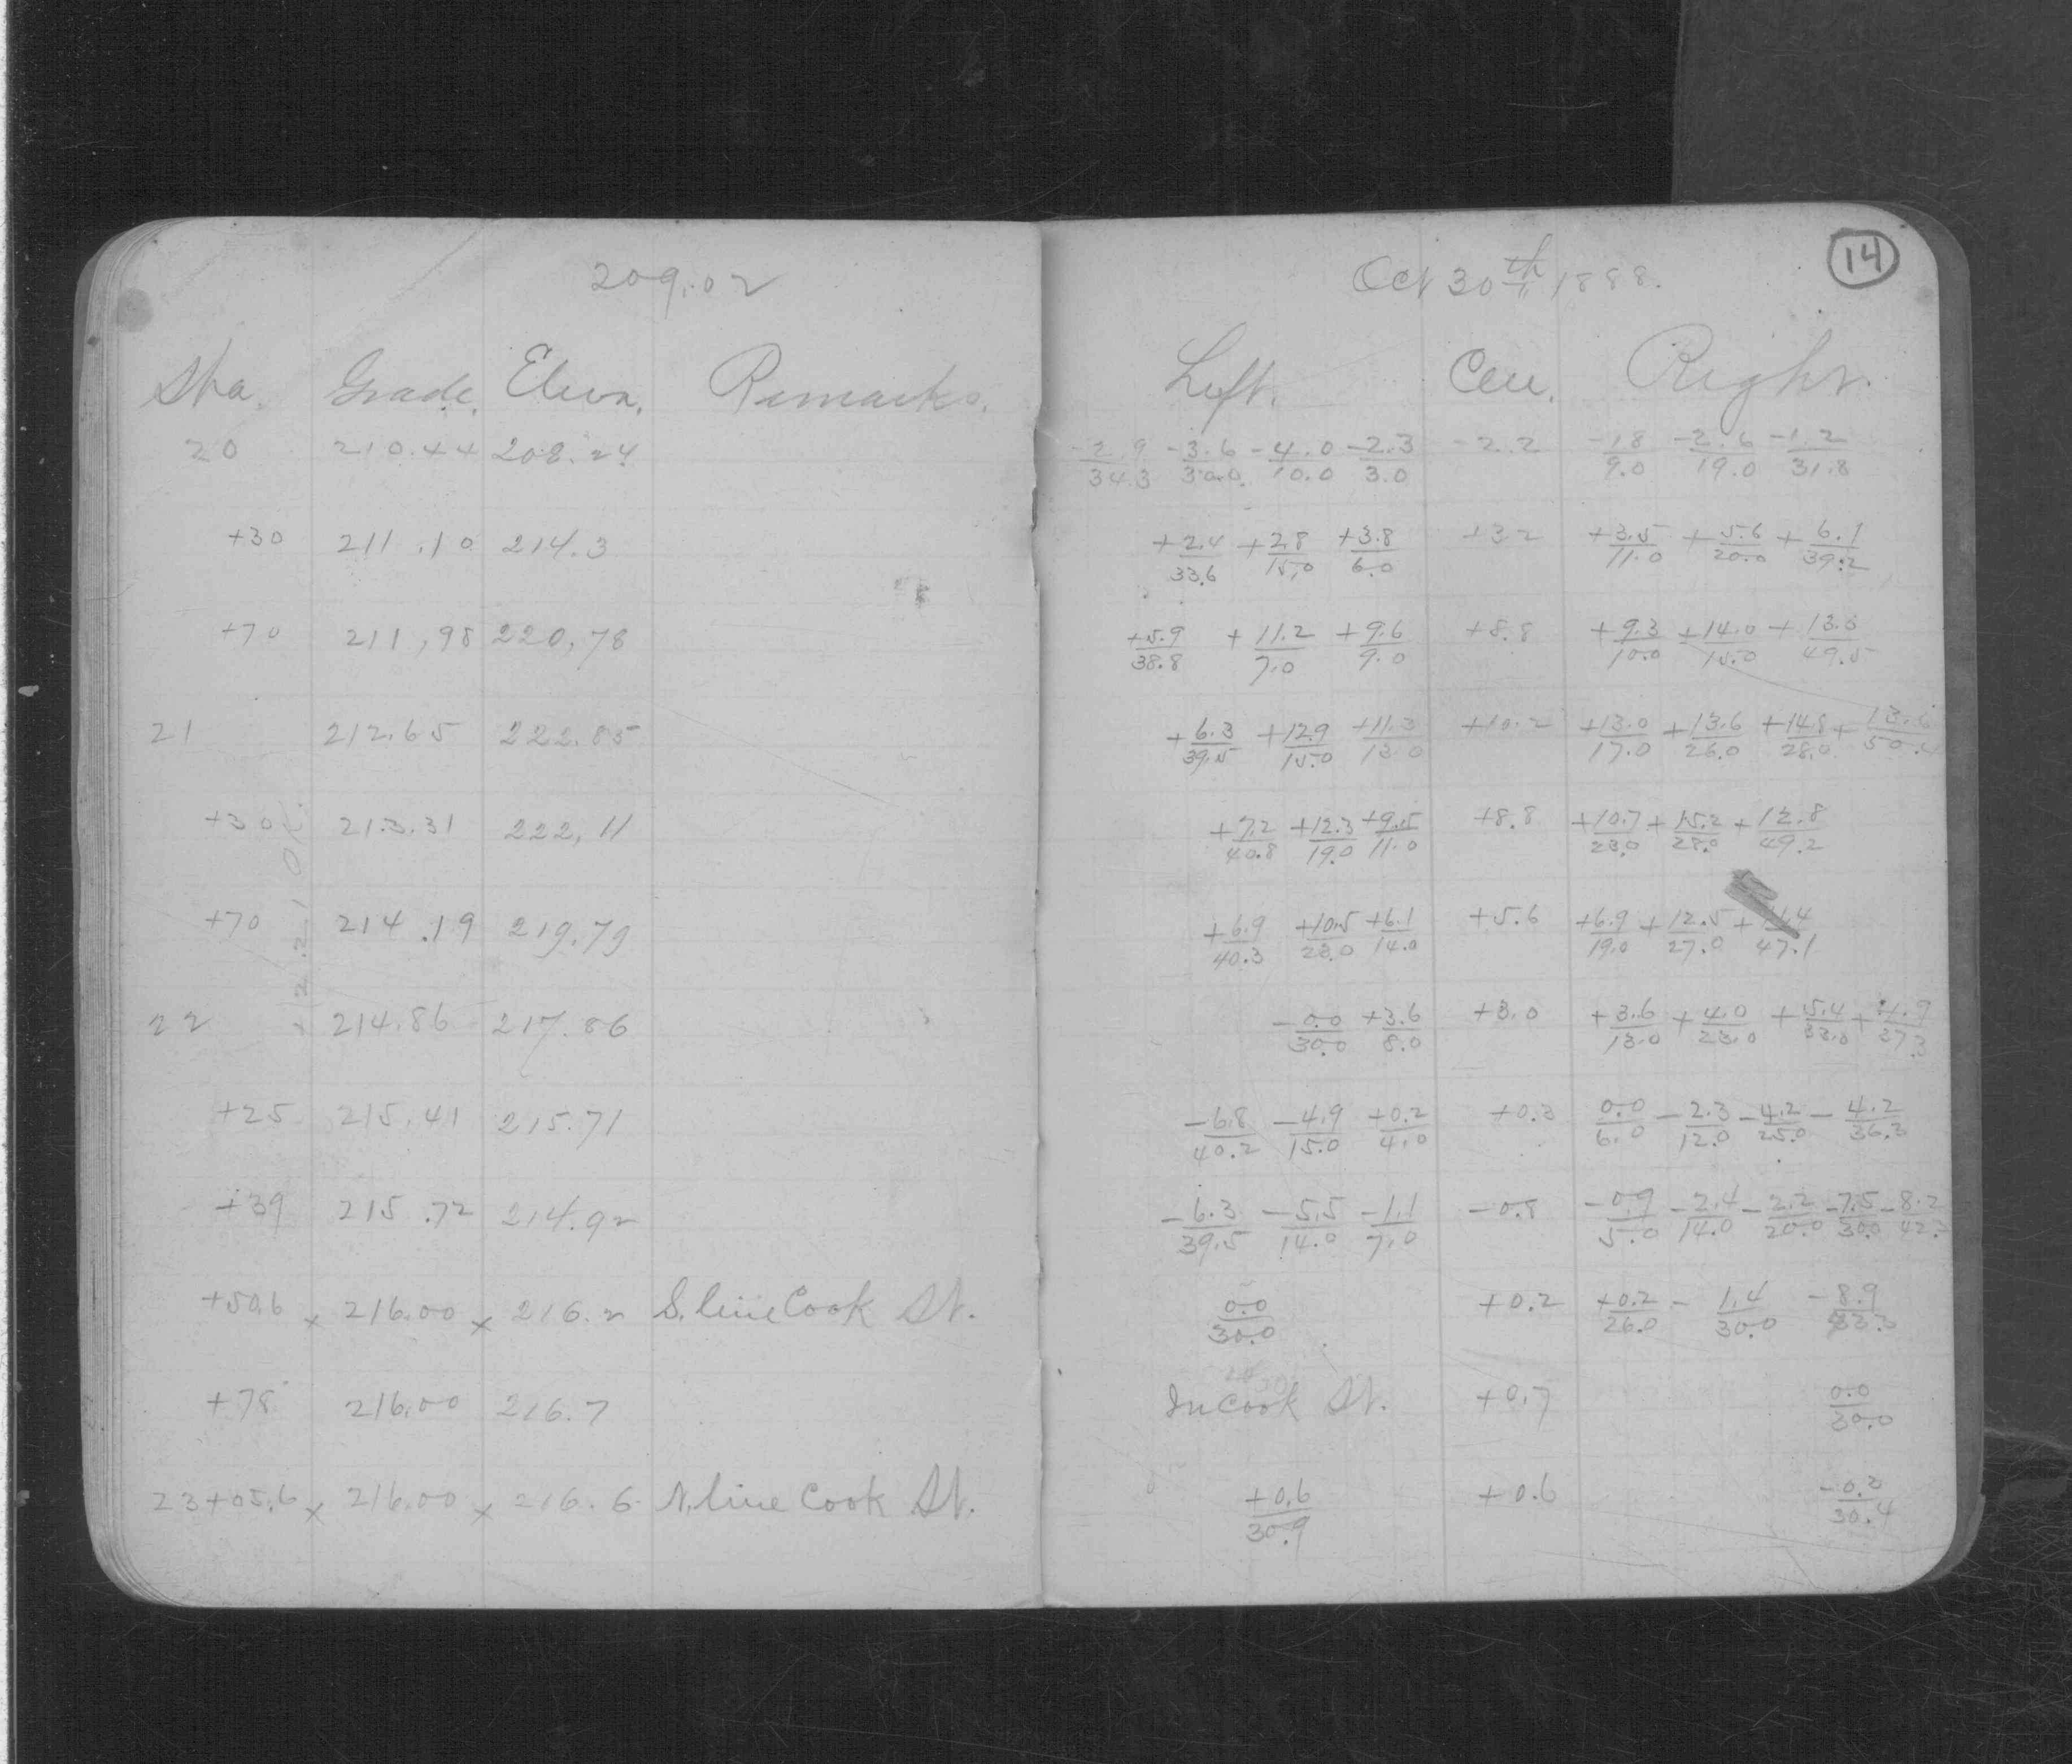 209.02
Sta. Grade. Eleva. Remarks.
20 210.44 208.24
+30 211.10 214.3
+70 211.98 220.78
21 212.65 222.85
+30 213.31 222.11
+70 214.19 219.79
22 214.86 217.86
+25 215.41 215.71
+39 215.72 214.92
+50.6 x 216.00 x 216.2 S. line Cook St.
+78 216.00 216.7
23+05.6 x 216.00 x 216.6 N. line Cook St.
14
Oct 30th 1888.
Left. Cen. Right.
-2.9/34.3 -3.6/30.0 -4.0/10.0 -2.3/3.0 -2.2 -1.8/9.0 -2.6/19.0 -1.2/31.8
+2.4/33.6 +2.8/15.0 +3.8/6.0 +3.2 +3.5/11.0 +5.6/20.0 +6.1/39.2
+5.9/38.8 +11.2/7.0 +9.6/9.0 +8.8 +9.3/10.0 +14.0/15.0 +13.3/49.5
+6.3/39.5 +12.9/15.0 +11.3/13.0 +10.2 +13.0/17.0 +13.6/26.0 +14.8/28.0
+7.2/40.8 +12.3/19.0 +9.5/11.0 +8.8 +10.7/23.0 +15.2/28.0 +12.8/49.2
+6.9/40.3 +10.5/23.0 +6.1/14.0 +5.6 +6.9/19.0 +12.5/27.0 +11.4/47.1
-0.0/30.0 +3.6/8.0 +3.0 +3.6/13.0 +4.0/23.0 +5.4/33.0
-6.8/40.2 -4.9/15.0 +0.2/4.0 +0.3 0.0/6.0 -2.3/12.0 -4.2/25.0 -4.2/36.3
-6.3/39.5 -5.5/14.0 -1.1/7.0 -0.8 -0.9/5.0 -2.4/14.0 -2.2/20.0 -7.5/30.0 -8.2/42.3
0.0/30.0 +0.2 +0.2/26.0 -1.4/30.0 -8.9/43.3
In Cook St. +0.7 0.0/30.0
+0.6/30.9 +0.6 -0.2/30.4